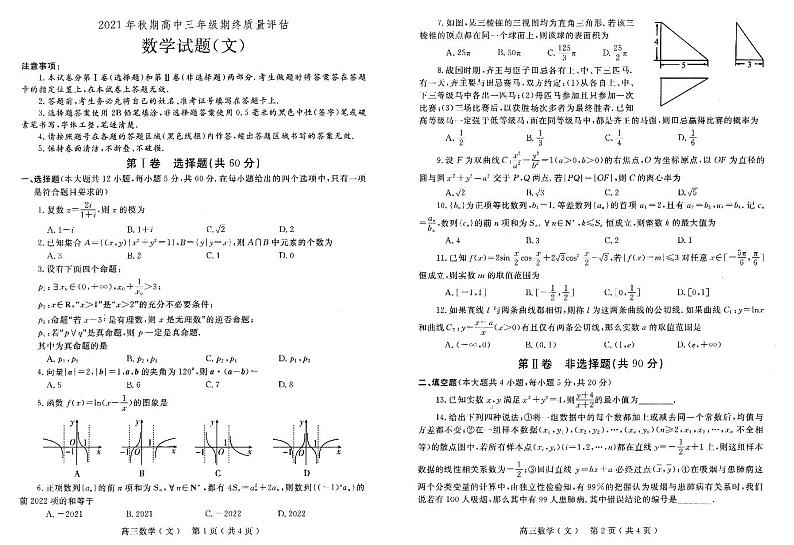 2021年秋期高中三年级期终质量评估
数学试题(文)
注意事项:
1.本试卷分第Ⅰ卷(选择题)和第Ⅱ卷(非选择题)两部分.考生做题时将答案答在答题
卡的指定位置上,在本试卷上答题无效.
2.答题前,考生务必先将自己的姓名、准考证号填写在答题卡上.
3.选择题答案使用2B铅笔填涂,非选择题答案使用0.5毫米的黑色中性(签字)笔或碳
素笔书写,字体工整,笔迹清楚.
4.请按照题号在各题的答题区域(黑色线框)内作答,超出答题区域书写的答案无效.
5.保持卷面清洁,不折叠、不破损.
第Ⅰ卷 选择题(共60分)
一、选择题(本大题共12小题,每小题5分,共60分.在每小题给出的四个选项中,只有一项
是符合题目要求的)
1.复数z=2i/(1+i),则z的模为
A.1-i B.1+i C.√2 D.2
2.已知集合A={(x,y)|x²+y²=1},B={y|y=x},则A∩B中元素的个数为
A.3 B.2 C.1 D.0
3.设有下面四个命题:
p₁:∃x₀∈(0,+∞),x₀+1/x₀>3;
p₂:x∈R,“x>1”是“x>2”的充分不必要条件;
p₃:命题“若x-3¹是有理数,则x是无理数”的逆否命题;
p₄:若“p∨q”是真命题,则p一定是真命题.
其中为真命题的是
A.p₁,p₂ B.p₂,p₃ C.p₂,p₄ D.p₁,p₃
4.向量|a|=2,|b|=1,a,b的夹角为120°,则a·(a-b)=
A.5 B.6 C.7 D.8
5.函数f(x)=ln(x-1/x)的图象是
y -1 O 1 x
A B C D
6.正项数列{aₙ}的前n项和为Sₙ,∀n∈N*,都有4Sₙ=aₙ²+2aₙ,则数列{(-1)ⁿaₙ}的
前2022项的和等于
A.-2021 B.2021 C.-2022 D.2022
高三数学(文) 第1页(共4页)
7.如图,某三棱锥的三视图均为直角三角形.若该三
棱锥的顶点都在同一个球面上,则该球的表面积为
A.25π B.50π C.125/3π D.25/2π
4 5 3
8.战国时期,齐王与臣子田忌各有上、中、下三匹马.
有一天,齐王要与田忌赛马,双方约定:(1)从各自上、中、
下三等级马中各出一匹马;(2)每匹马参加且只参加一次
比赛;(3)三场比赛后,以获胜场次多者为最终胜者.已知
高等级马一定强于低等级马,而在同等级马中,都是齐王的马强,则田忌赢得比赛的概率为
A.1/2 B.1/3 C.1/4 D.1/6
9.设F为双曲线C:x²/a²-y²/b²=1(a>0,b>0)的右焦点,O为坐标原点,以OF为直径的
圆与圆x²+y²=a²交于P,Q两点.若|PQ|=|OF|,则C的离心率为
A.√2 B.√3 C.2 D.√5
10.{bₙ}为正项等比数列,b₁=1,等差数列{aₙ}的首项a₁=2,且有a₂=b₃,a₃=b₄.记cₙ
=aₙ/bₙ,数列{cₙ}的前n项和为Sₙ.∀n∈N*,k≤Sₙ恒成立,则整数k的最大值为
A.4 B.3 C.2 D.1
11.已知f(x)=2sin x/2 cos x/2+2√3cos² x/2-√3,若|f(x)-m|≤3对任意x∈[-5π/6,π/6]
恒成立,则实数m的取值范围为
A.[-1,1] B.[-1/2,1/2] C.[0,1/2] D.[0,1]
12.如果直线l与两条曲线都相切,则称l为这两条曲线的公切线.如果曲线C₁:y=lnx
和曲线C₂:y=(x-a)/x(x>0)有且仅有两条公切线,那么实数a的取值范围是
A.(-∞,0) B.(0,1) C.(1,e) D.(e,+∞)
第Ⅱ卷 非选择题(共90分)
二、填空题(本大题共4小题,每小题5分,共20分)
13.已知实数x,y满足x²+y²=4,则(y+4)/(x+2)的最小值为______.
14.给出下列四种说法:①将一组数据中的每个数都加上或减去同一个常数后,均值与
方差都不变;②在一组样本数据(x₁,y₁),(x₂,y₂),…,(xₙ,yₙ)(n≥2,x₁,x₂,…,xₙ不全相
等)的散点图中,若所有样本点(xᵢ,yᵢ)(i=1,2,…,n)都在直线y=-1/2x+1上,则这组样本
数据的线性相关系数为-1/2;③回归直线y=bx+a必经过点(x̄,ȳ);④在吸烟与患肺病这
两个分类变量的计算中,由独立性检验知,有99%的把握认为吸烟与患肺病有关系时,我们
说若有100人吸烟,那么其中有99人患肺病.其中错误结论的编号是______.
高三数学(文) 第2页(共4页)